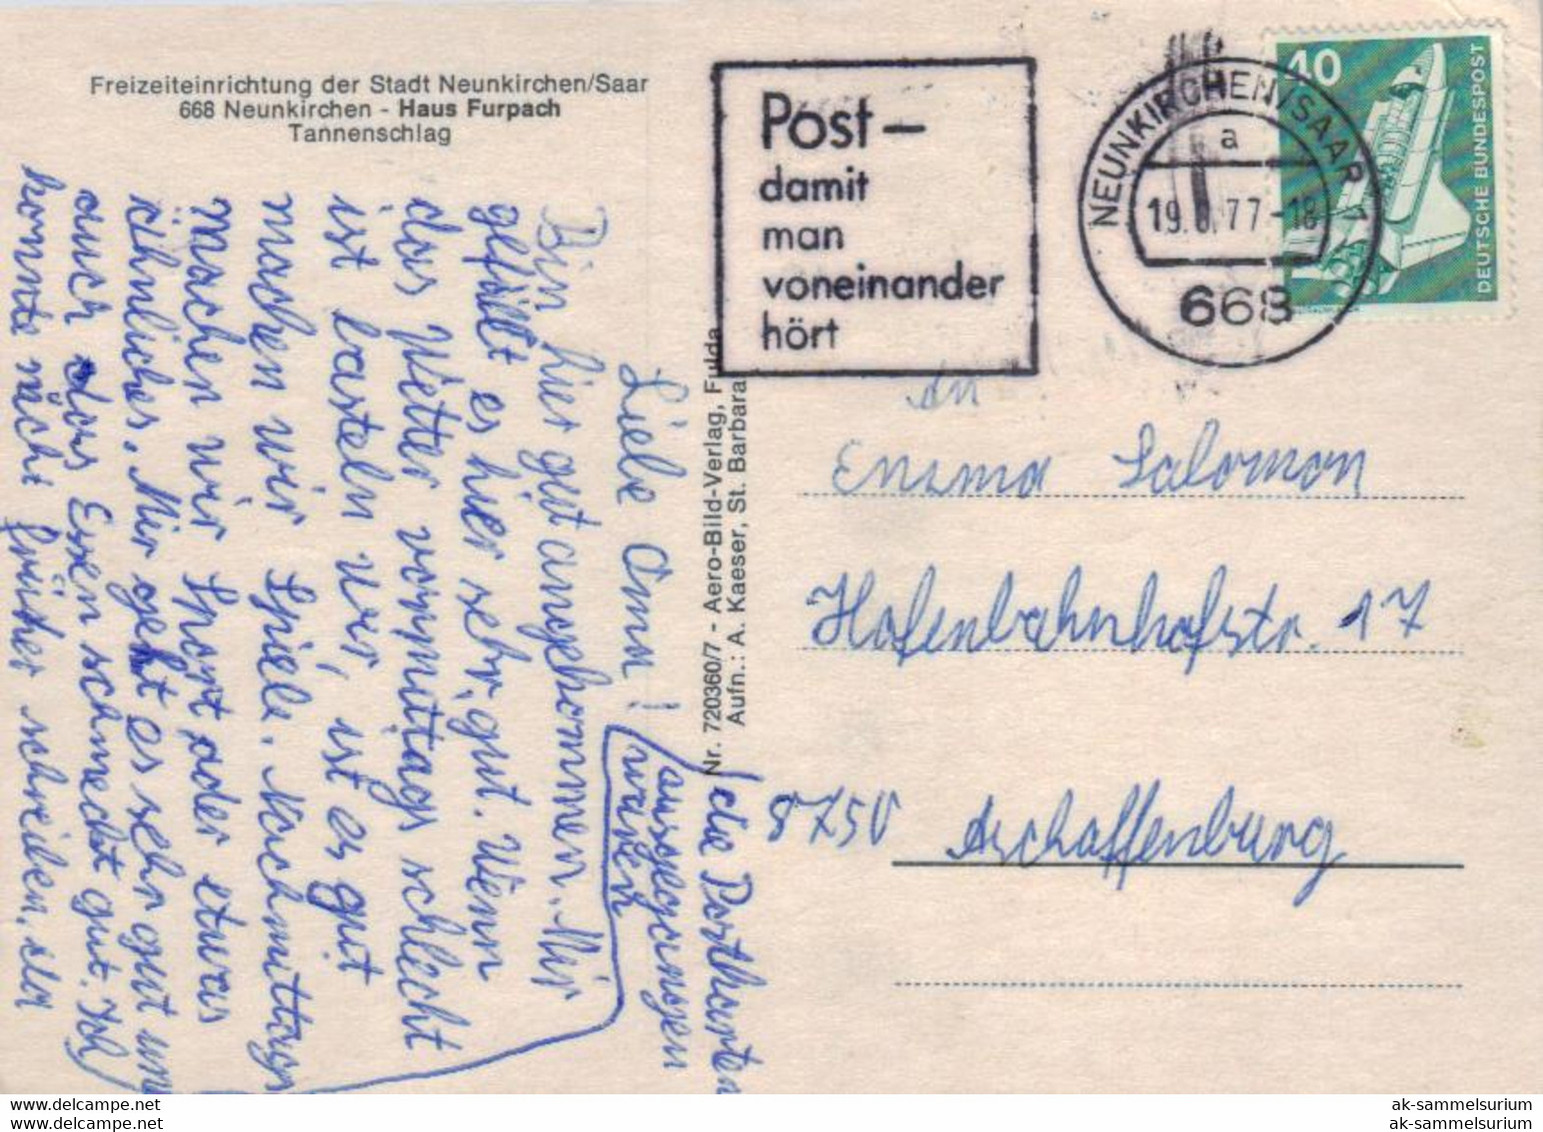 Freizeiteinrichtung der Stadt Neunkirchen/Saar
668 Neunkirchen - Haus Furpach
Tannenschlag
Post –
damit
man
voneinander
hört
NEUNKIRCHEN/SAAR 1
a
77-18
668
40
DEUTSCHE BUNDESPOST
Liebe Oma!
Bin hier gut angekommen. Mir
gefällt es hier sehr gut. Wenn
das Wetter vormittags schlecht
ist basteln wir, ist es gut
machen wir Spiele. Nachmittags
machen wir Sport oder etwas
ähnliches. Mir geht es sehr gut und
auch das Essen schmeckt gut. Ich
konnte nicht früher schreiben, da
die Postkarten
ausgegangen
waren
Nr. 720360/7 - Aero-Bild-Verlag, Fulda
Aufn.: A. Kaeser, St. Barbara
An
Emma Salomon
Hafenbahnhofstr. 17
8750 Aschaffenburg
ak-sammelsurium.com
ak-sammelsurium.com
ak-sammelsurium
ak-sammelsurium